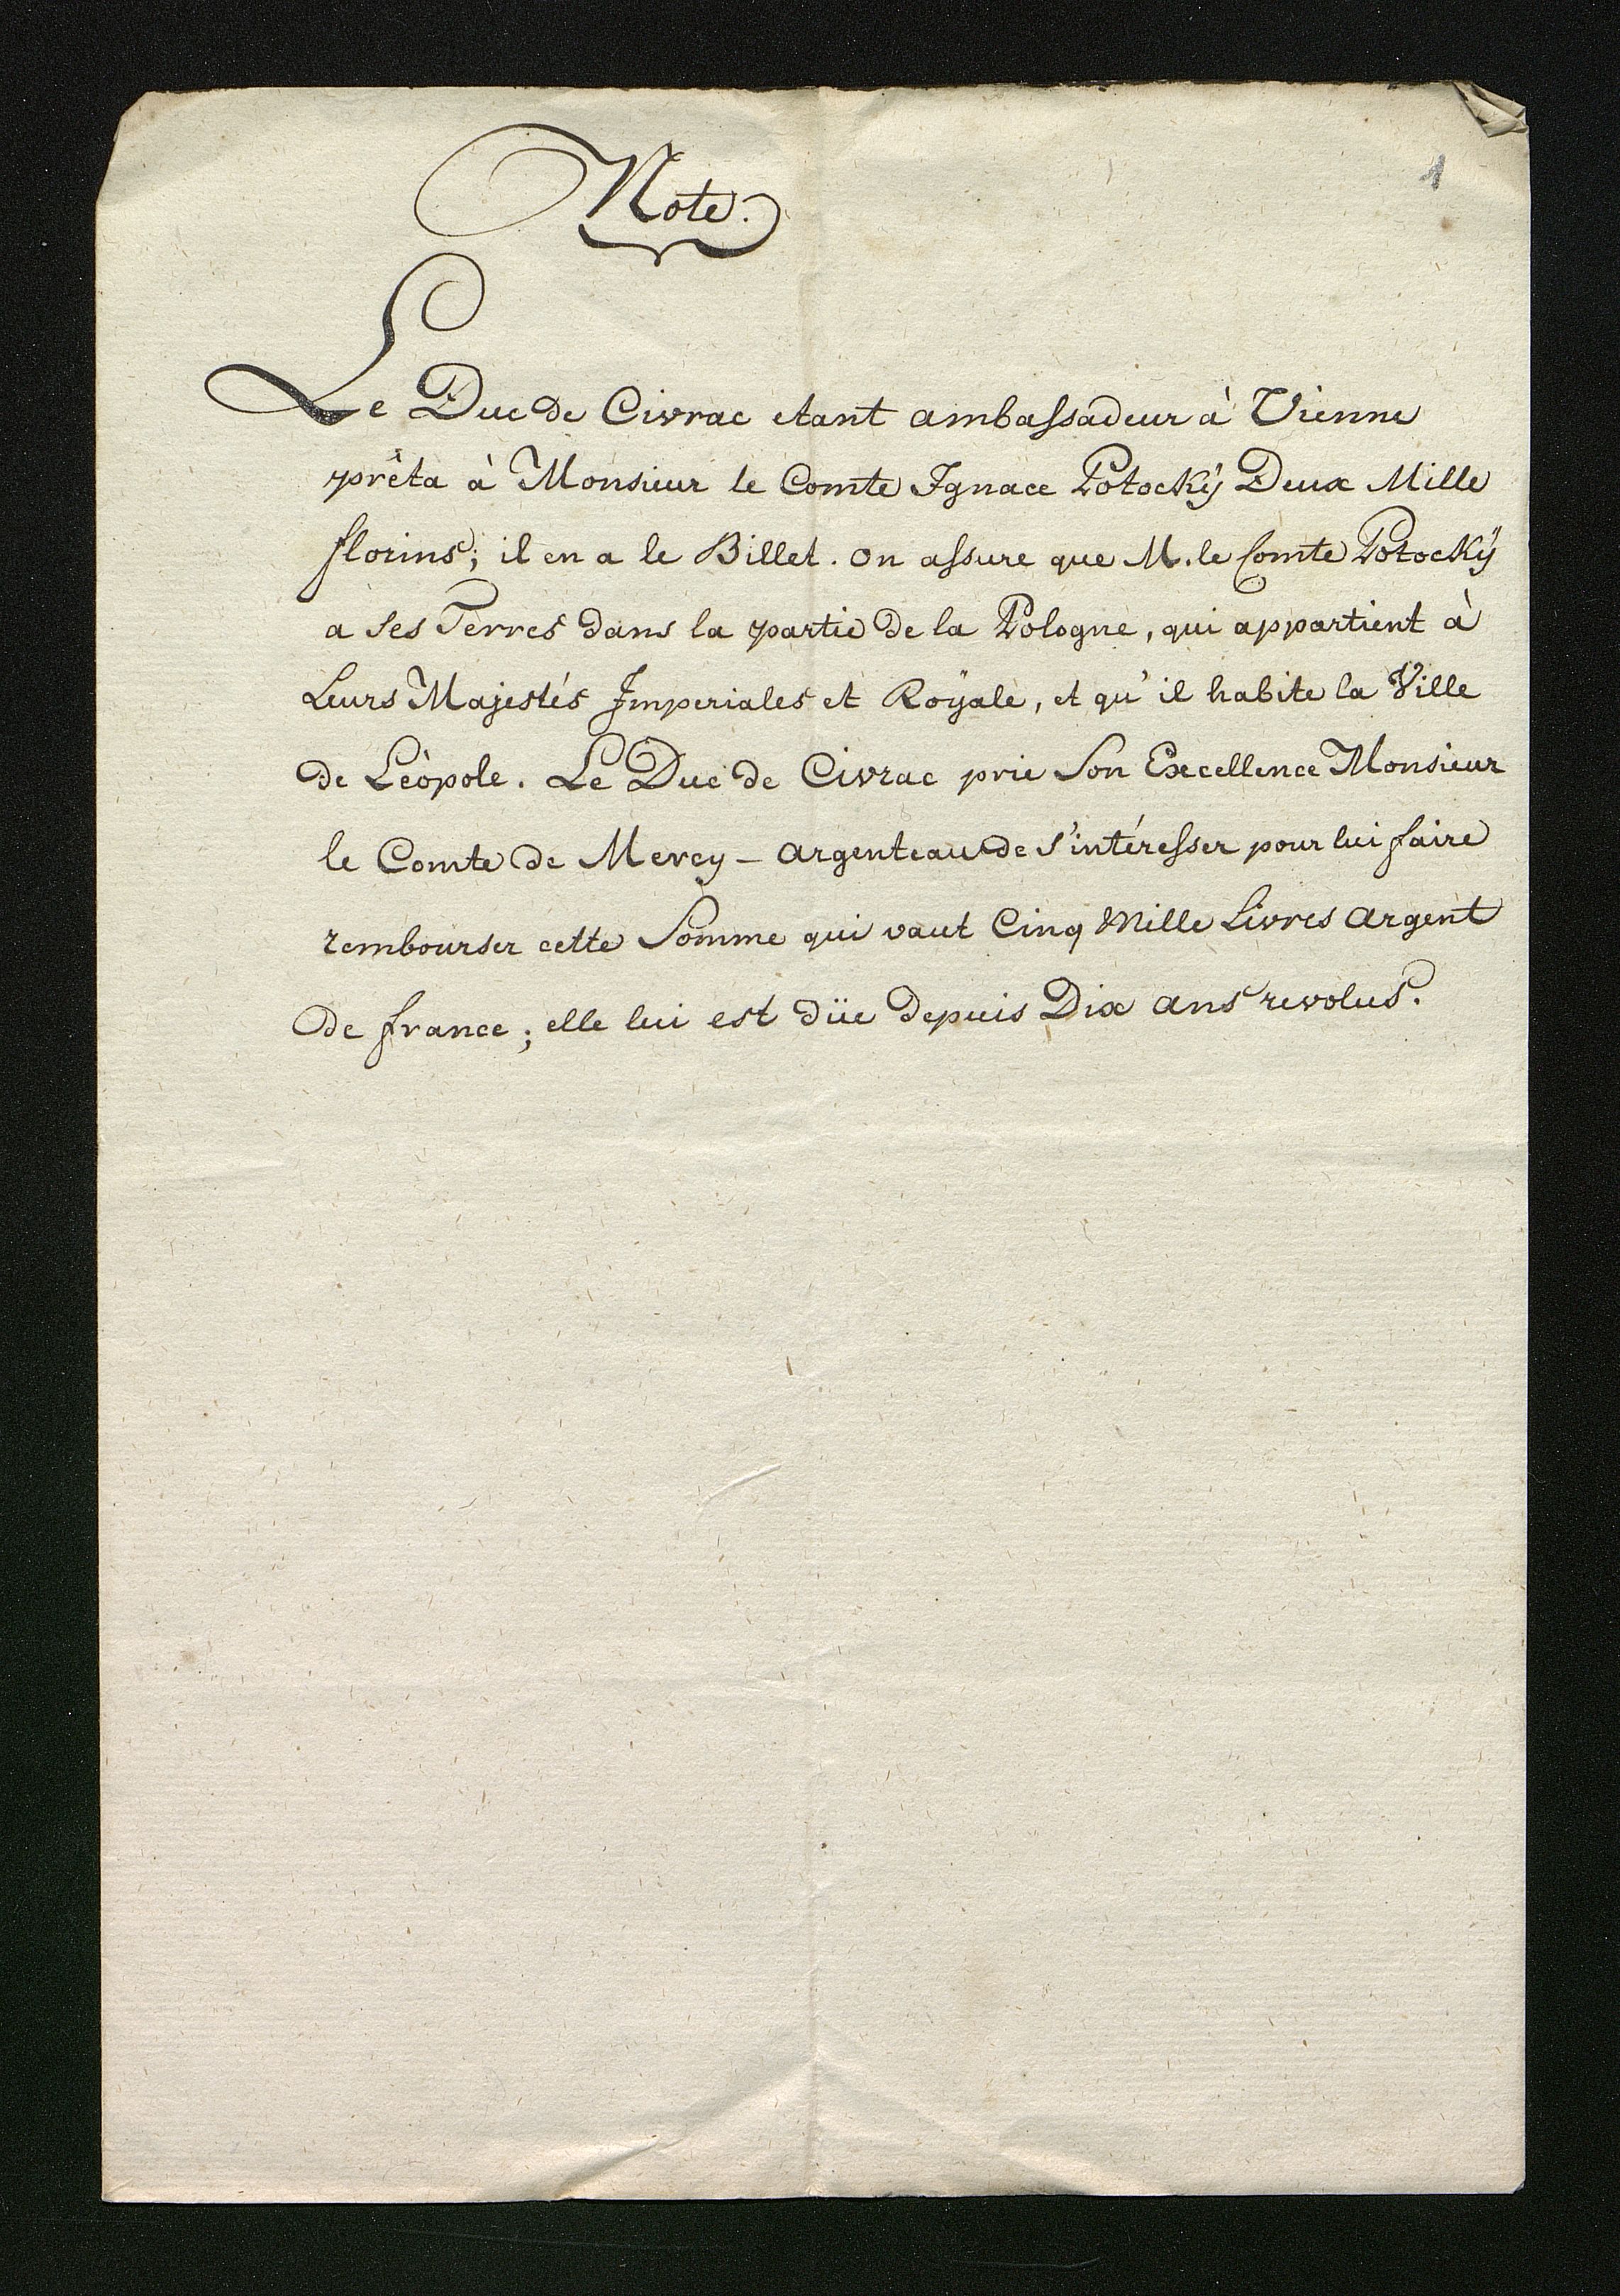 1
Note.
Le Duc de Civrac etant ambassadeur à Vienne
prêta à Monsieur le Comte Ignace Potockÿ Deux Mille
florins; il en a le Billet. on assure que M. le Comte Potockÿ
a ses Terres dans la partie de la Pologne, qui appartient à
Leurs Majestés Imperiales et Roÿale, et qu'il habite la Ville
de Lèopole. Le Duc de Civrac prie Son Excellence Monsieur
le Comte de Mercy - argenteau de s'intéresser pour lui faire
rembourser cette Somme qui vaut Cinq Mille Livres argent
de france; elle lui est düe depuis Dix ans revolus.